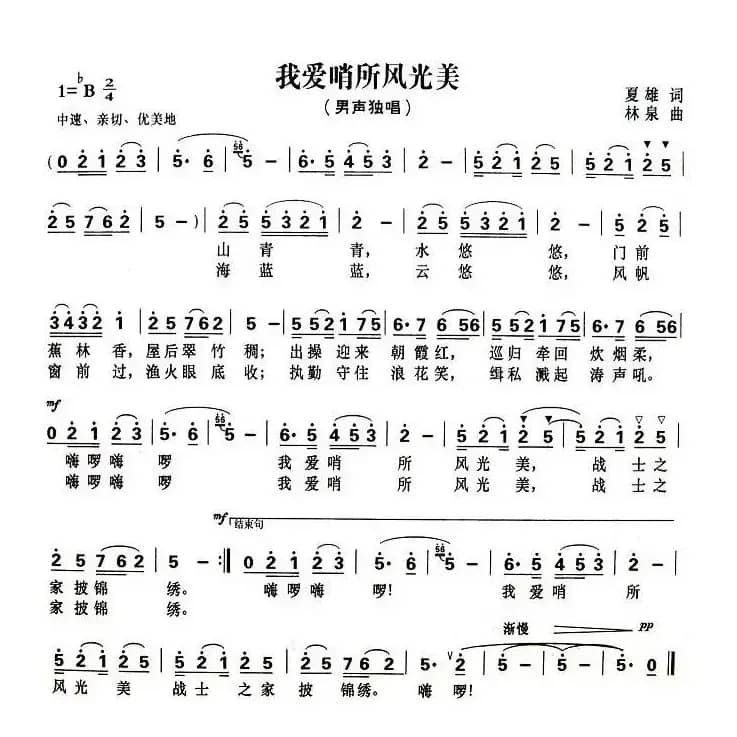 我爱哨所风光美
(男声独唱)
1=♭B 2/4
中速、亲切、优美地
夏雄 词
林泉 曲
(0 2 1 2 3 | 5· 6 | 5 - | 6· 5 4 5 3 | 2 - | 5 2 1 2 5 | 5 2 1 2 5 |
2 5 7 6 2 | 5 - ) | 2 5 5 3 2 1 | 2 - | 2 5 5 3 2 1 | 2 - | 5 2 5 |
山 青 青, 水 悠 悠, 门前
海 蓝 蓝, 云 悠 悠, 风帆
3 4 3 2 1 | 2 5 7 6 2 | 5 - | 5 5 2 1 7 5 | 6· 7 6 5 6 | 5 5 2 1 7 5 | 6· 7 6 5 6 |
蕉 林 香, 屋后翠 竹 稠; 出操 迎来 朝霞红, 巡归 牵回 炊烟柔,
窗 前 过, 渔火眼 底 收; 执勤 守住 浪花笑, 缉私 溅起 涛声吼。
mf
0 2 1 2 3 | 5· 6 | 5 - | 6· 5 4 5 3 | 2 - | 5 2 1 2 5 | 5 2 1 2 5 |
嗨啰嗨 啰 我爱哨 所 风光 美, 战 士之
嗨啰嗨 啰 我爱哨 所 风光 美, 战 士之
mf 结束句
2 5 7 6 2 | 5 - :‖ 0 2 1 2 3 | 5· 6 | 5 - | 6· 5 4 5 3 | 2 - |
家披锦 绣。 嗨啰嗨 啰! 我爱哨 所
家披锦 绣。
渐慢 pp
5 2 1 2 5 | 5 2 1 2 5 | 2 5 7 6 2 | 5· 2 | 5 - | 5 - | 5· 0 ‖
风光 美 战 士 之家披 锦绣。嗨 啰!